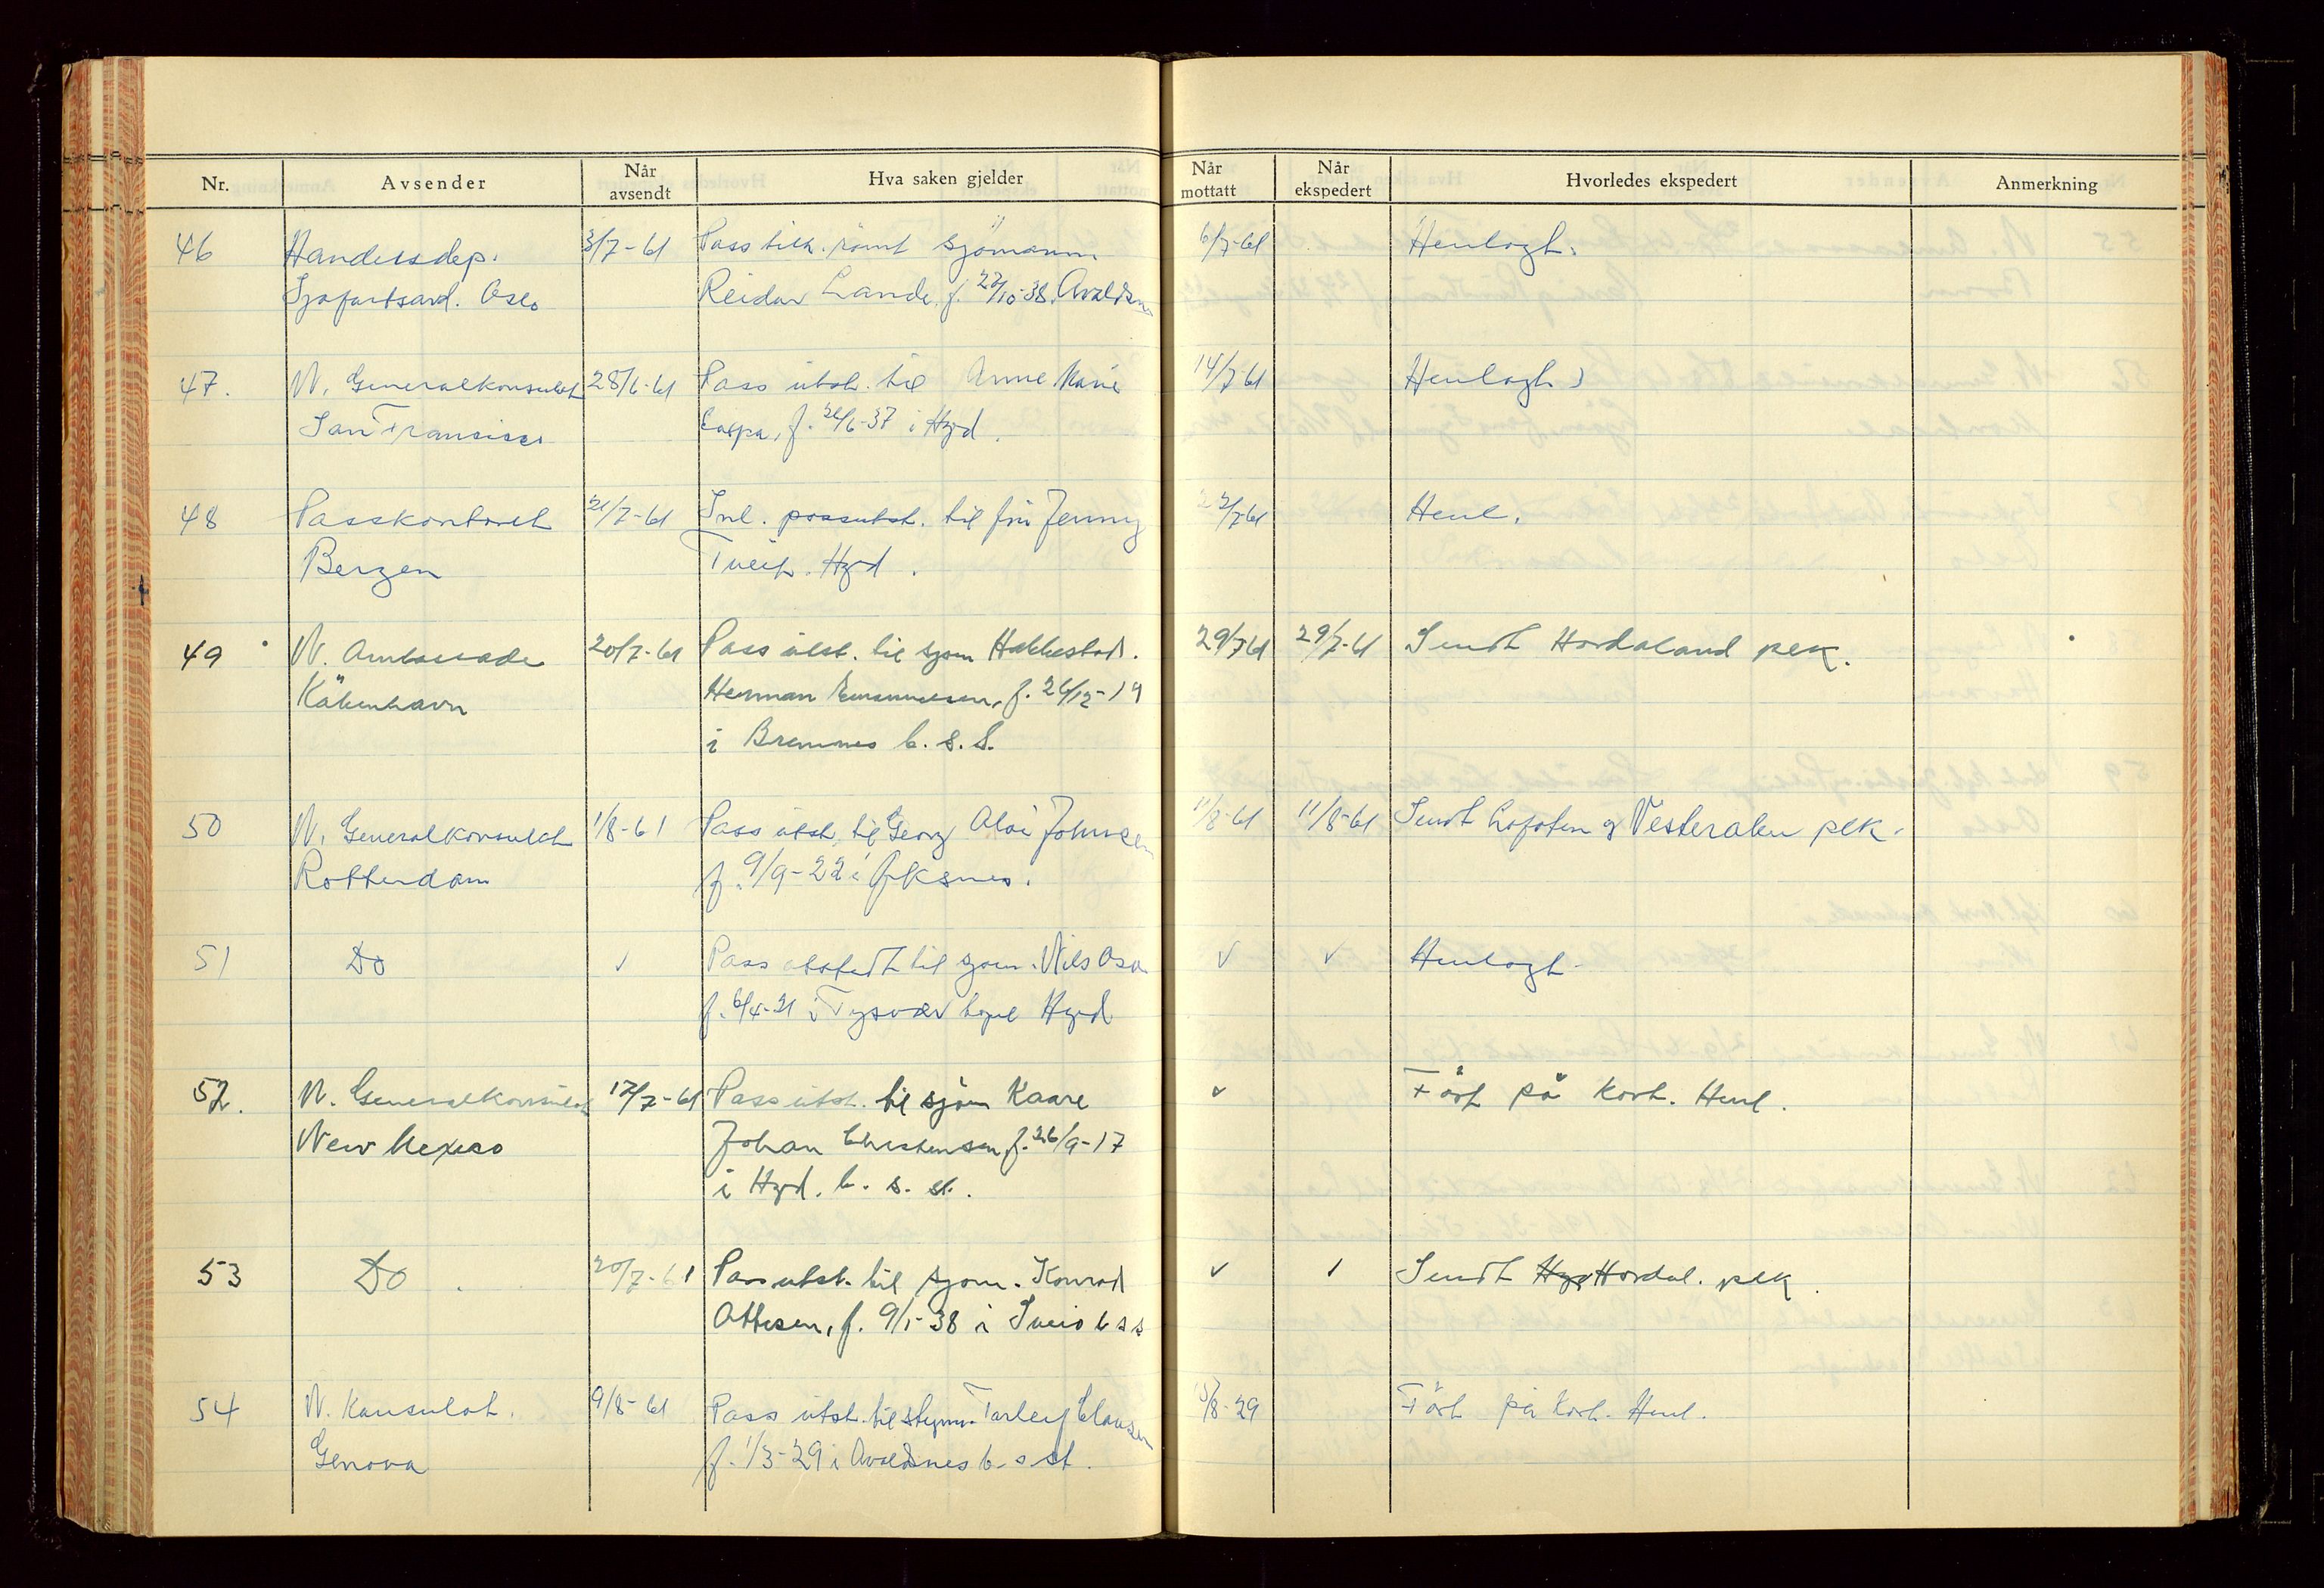 Nr. Avsender Når avsendt Hva saken gjelder Når mottatt Når ekspedert Hvorledes ekspedert Anmerkning
46 Handelsdep. 3/7-61 Pass tilh. römt sjömann 6/7-61 Henlagt.
Sjøfartsavd. Oslo Reidar Lande, f. 22/10-38, Avaldsn
47. N. Generalkonsulat 28/6-61 Pass utst. til Anne Marie 14/7-61 Henlagt
San Fransisco f. 26/6-37 i Hgsd.
48 Passkontoret 21/7-61 Inl. passutst. til fru Jenny 22/7-61 Henl.
Bergen Tveit. Hgsd.
49 N. Ambassade 20/7-61 Pass utst. til sjøm Hekkestad. 29/7-61 29/7-61 Sendt Hordaland plk.
Köbenhavn Herman f. 26/12-19
i Bremnes b. s. S.
50 N. Generalkonsulat 1/8-61 Pass utst. til Georg Johnsen 11/8-61 11/8-61 Sendt Lofoten og Vesterålen plk.
Rotterdam f. 9/9-22 i Öksnes.
51 Do ✓ Pass utstedt til sjøm. Nils ✓ ✓ Henlagt
f. 6/4-21 i Tysvær Hgsd
52. N. Generalkonsulat 17/7-61 Pass utst. til sjöm Kaare ✓ Fört på kort. Henl.
New Mexico Johan Christensen, f. 26/9-17
i Hgsd. b. s. st.
53 Do 20/7-61 Pass utst. til sjøm. Konrad ✓ Sendt Hordal. plk.
Ottesen, f. 9/1-38 i Sveio b s s
54 N. Konsulat. 9/8-61 Pass utst. til styrm. Torleif Clausen 15/8-29 Fört på kort. Henl.
Genova f. 1/3-29 i Avaldsnes b. s st.